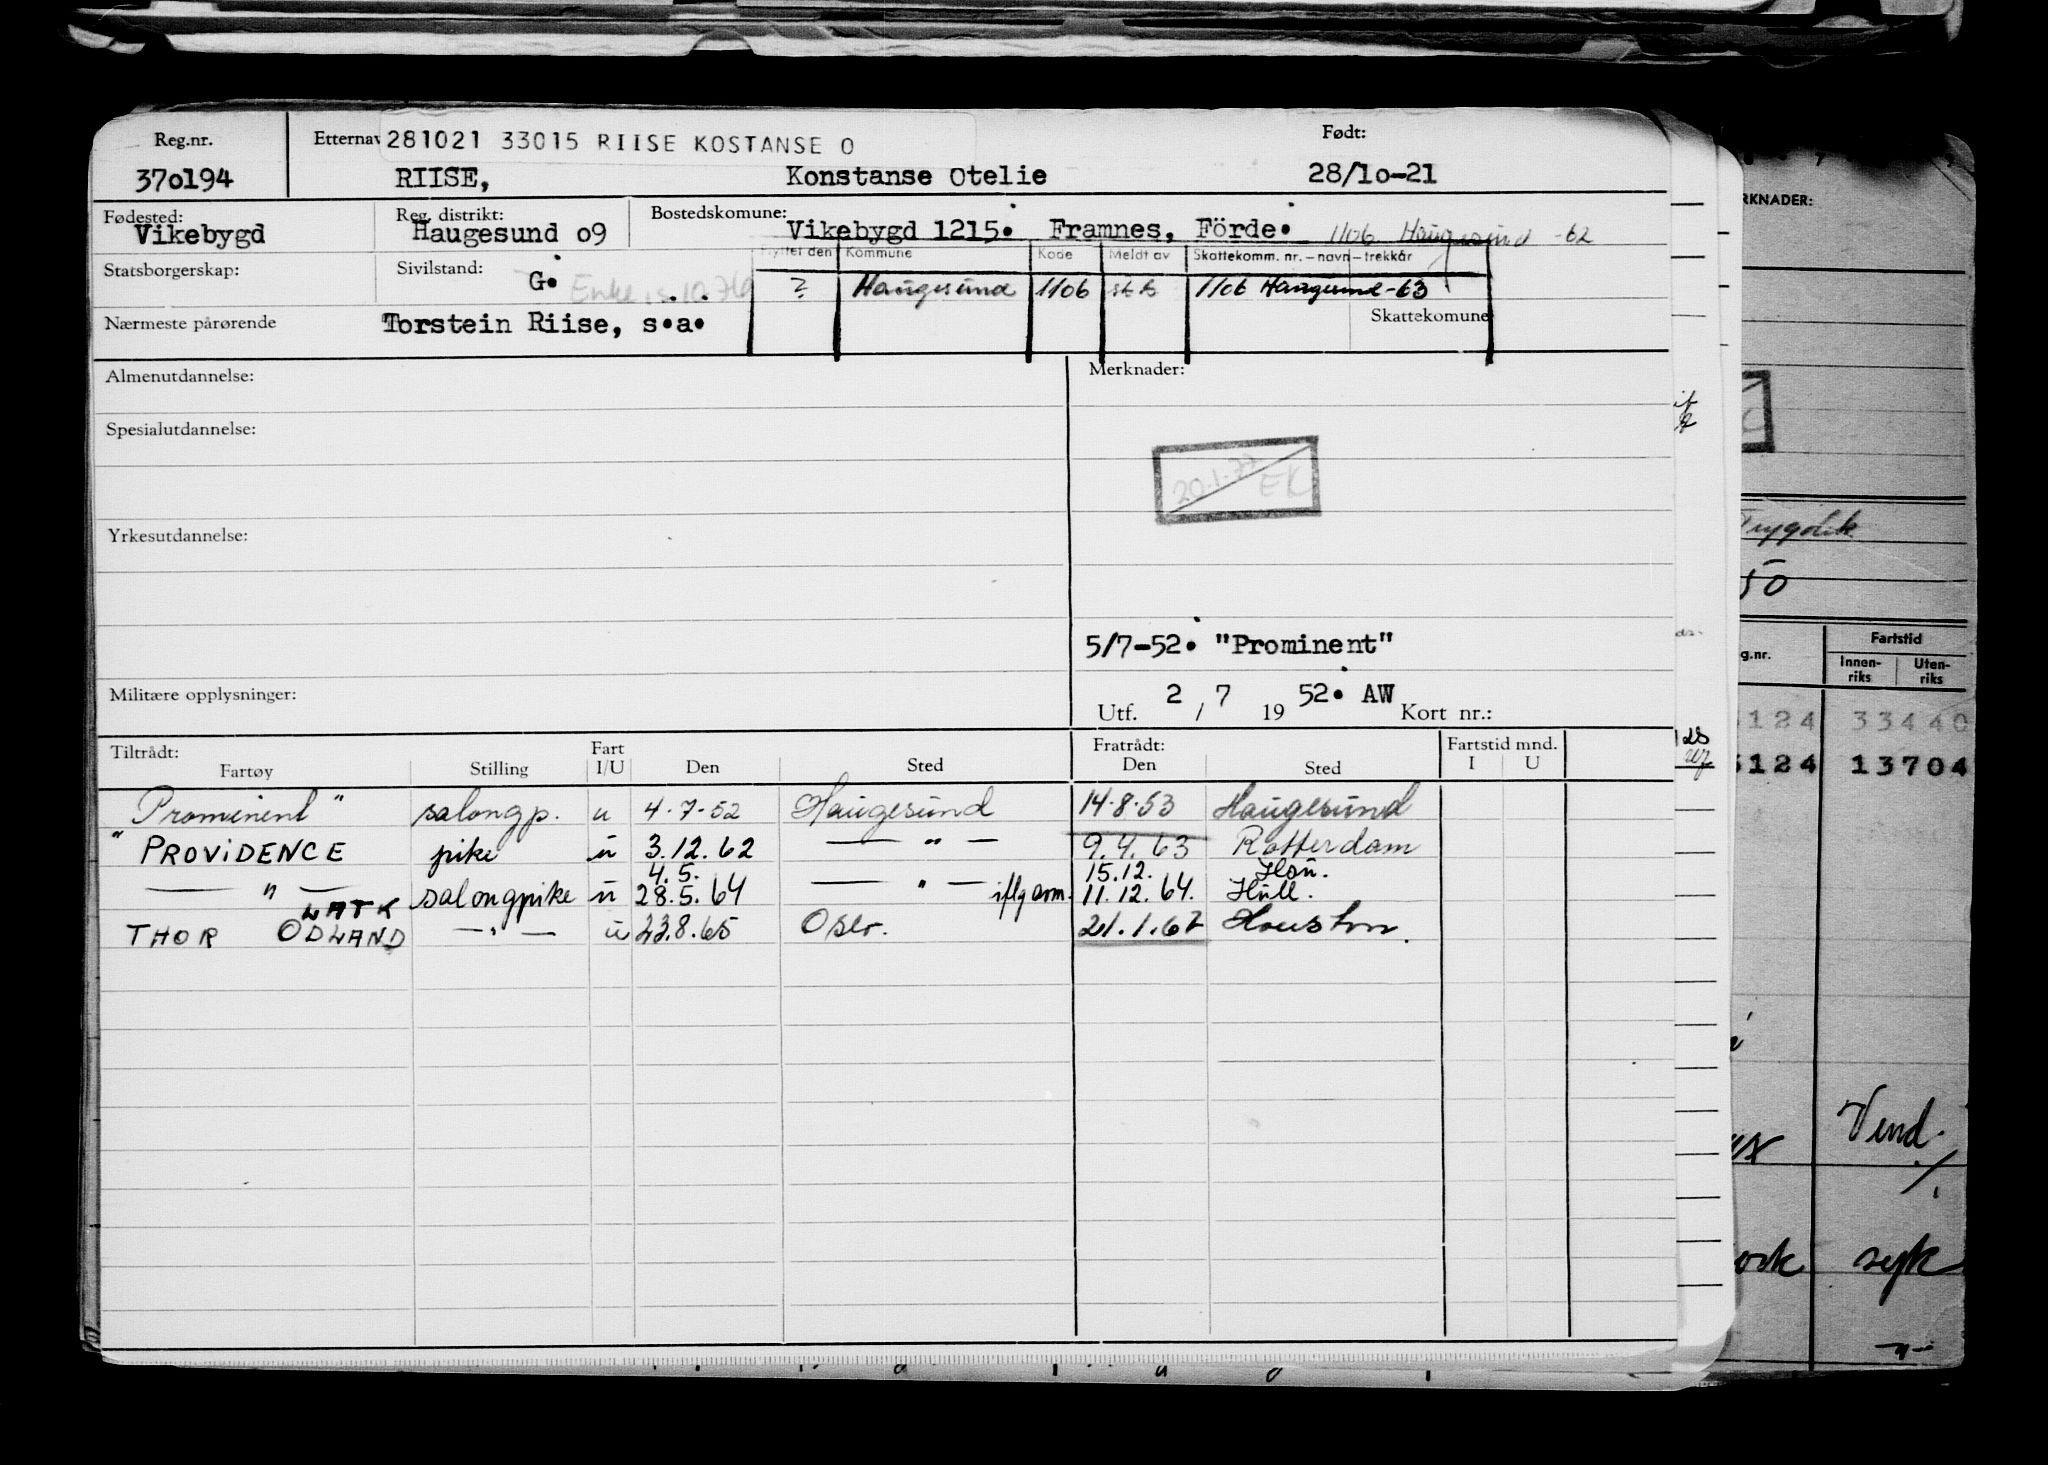 Reg.nr. Etternav 281021 33015 RIISE KOSTANSE O Født:
370194 RIISE, Konstanse Otelie 28/10-21
Fødested: Reg. distrikt: Bostedskomune:
Vikebygd Haugesund 09 Vikebygd 1215. Framnes, Förde. 1106 Haugesund -62
Flyttet den Kommune Kode Meldt av Skattekomm. nr. - navn - trekkår
Statsborgerskap: Sivilstand: G. Enke
? Haugesund 1106 1106 Haugesund-63
Nærmeste pårørende Torstein Riise, s.a. Skattekomune
Almenutdannelse: Merknader:
Spesialutdannelse:
20.1.77 EK
Yrkesutdannelse:
5/7-52. "Prominent"
Militære opplysninger:
Utf. 2 / 7 19 52. AW Kort nr.:
Tiltrådt: Fart Fratrådt: Fartstid mnd.
Fartøy Stilling I/U Den Sted Den Sted I U
Prominent " salongp. u 4.7.52 Haugesund 14.8.53 Haugesund
" PROVIDENCE pike u 3.12.62 — " — 9.4.63 Rotterdam
4.5. 15.12. Hau.
— " — salongpike u 28.5.64 — " — iflg 11.12.64. Hull.
THOR ODLAND — " — u 23.8.65 Oslo. 21.1.67 Houston.
RKNADER:
Trygdek
50
g.nr. Fartstid
Innen-riks Uten-riks
124 33440
5124 13704
Vend.
/.
syk